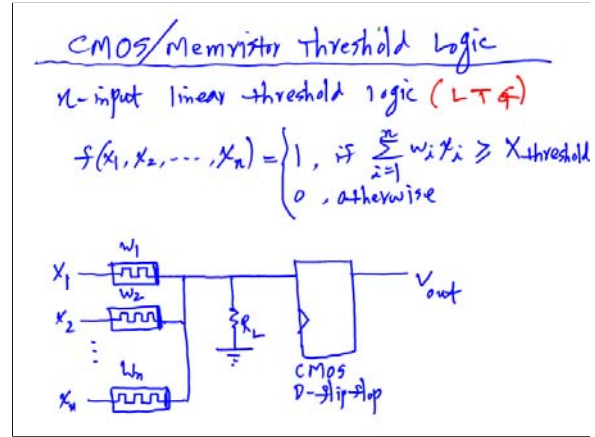 CMOS/Memristor Threshold Logic
n-input linear threshold logic (LTG)
f(x₁, x₂, ..., xₙ) = { 1, if Σᵢ₌₁ⁿ wᵢxᵢ ≥ Xthreshold
0, otherwise
w₁
X₁
w₂
x₂
Vout
RL
⋮
Wₙ
CMOS
D-flip-flop
xₙ